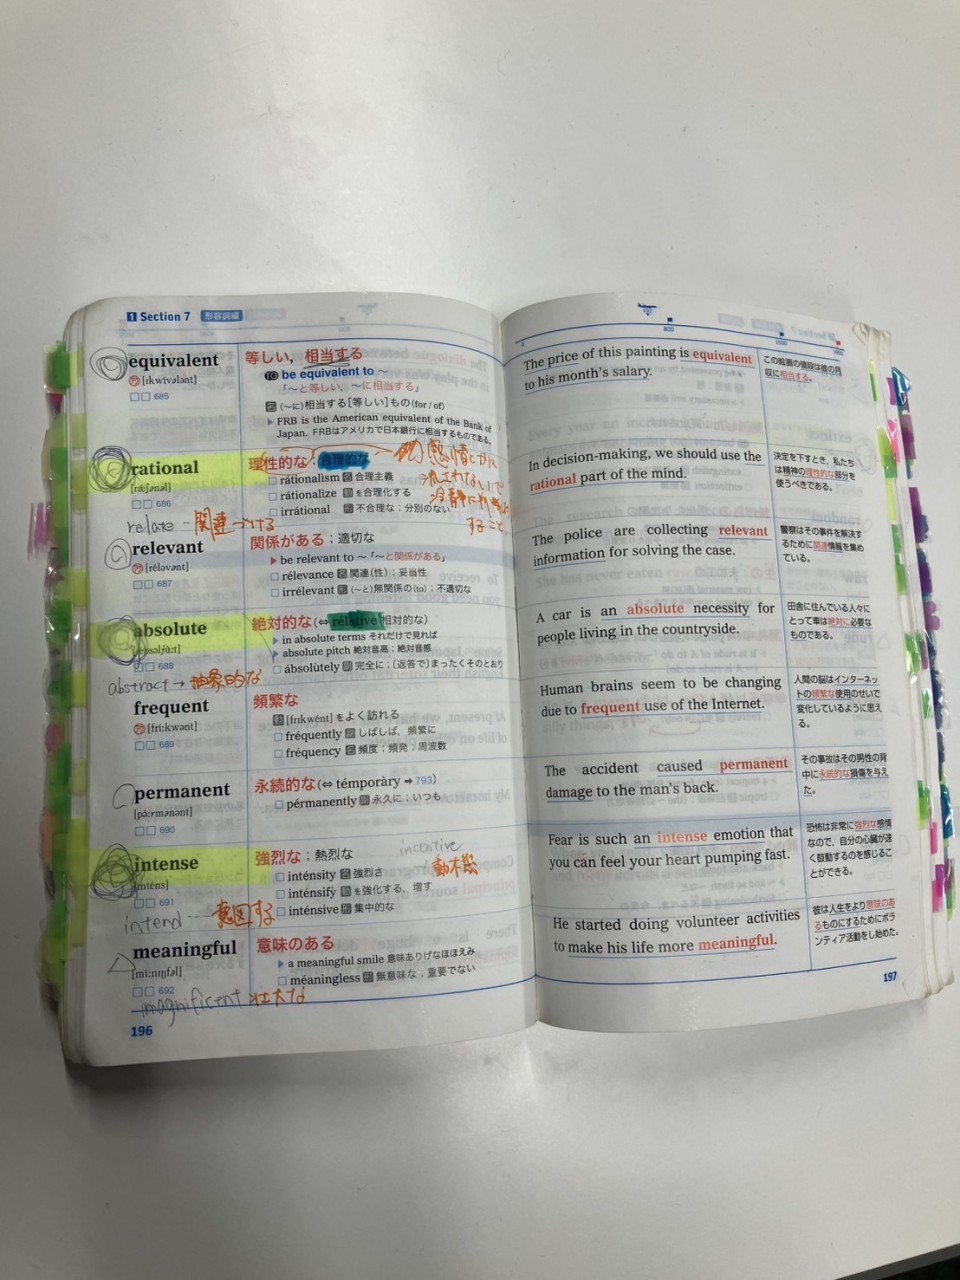 1 Section 7 形容詞編
equivalent
[ɪkwívələnt]
685
等しい，相当する
be equivalent to ～
「～と等しい，～に相当する」
名 (～に)相当する[等しい]もの(for / of)
▶ FRB is the American equivalent of the Bank of
Japan. FRBはアメリカで日本銀行に相当するものである。
rational
[rǽʃənəl]
686
理性的な；合理的な
感情とかに
流されないで
冷静に
すること
rátionalism 名 合理主義
rátionalize 動 を合理化する
irrátional 形 不合理な；分別のない
relate → 関連づける
relevant
[réləvənt]
687
関係がある；適切な
▶ be relevant to ～「～と関係がある」
rélevance 名 関連(性)；妥当性
irrélevant 形 (～と)無関係の(to)；不適切な
absolute
[ǽbsəljùːt]
688
絶対的な(⇔ rélative 相対的な)
▶ in absolute terms それだけで見れば
▶ absolute pitch 絶対音高；絶対音感
ábsolùtely 副 完全に；(返答で)まったくそのとおり
abstract → 抽象的な
frequent
[fríːkwənt]
689
頻繁な
動 [frɪkwént] をよく訪れる
fréquently 副 しばしば，頻繁に
fréquency 名 頻度；頻発；周波数
permanent
[pə́ːrmənənt]
690
永続的な(⇔ témporàry ➡ 793)
pérmanently 副 永久に；いつも
intense
[ɪnténs]
691
強烈な；熱烈な
incentive
動機
inténsity 名 強烈さ
inténsify 動 を強化する，増す
inténsive 形 集中的な
intend → 意図する
meaningful
[míːnɪŋfəl]
692
意味のある
▶ a meaningful smile 意味ありげなほほえみ
méaningless 形 無意味な；重要でない
magnificent 壮大な
196
0 800 1500 1900
The price of this painting is equivalent
to his month's salary.
この絵画の値段は彼の月
収に相当する。
In decision-making, we should use the
rational part of the mind.
決定を下すとき，私たち
は精神の理性的な部分を
使うべきである。
The police are collecting relevant
information for solving the case.
警察はその事件を解決す
るために関連情報を集め
ている。
A car is an absolute necessity for
people living in the countryside.
田舎に住んでいる人々に
とって車は絶対に必要な
ものである。
Human brains seem to be changing
due to frequent use of the Internet.
人間の脳はインターネッ
トの頻繁な使用のせいで
変化しているように思え
る。
The accident caused permanent
damage to the man's back.
その事故はその男性の背
中に永続的な損傷を与え
た。
Fear is such an intense emotion that
you can feel your heart pumping fast.
恐怖は非常に強烈な感情
なので，自分の心臓が速
く鼓動するのを感じるこ
とができる。
He started doing volunteer activities
to make his life more meaningful.
彼は人生をより意味のあ
るものにするためにボラ
ンティア活動をし始めた。
197